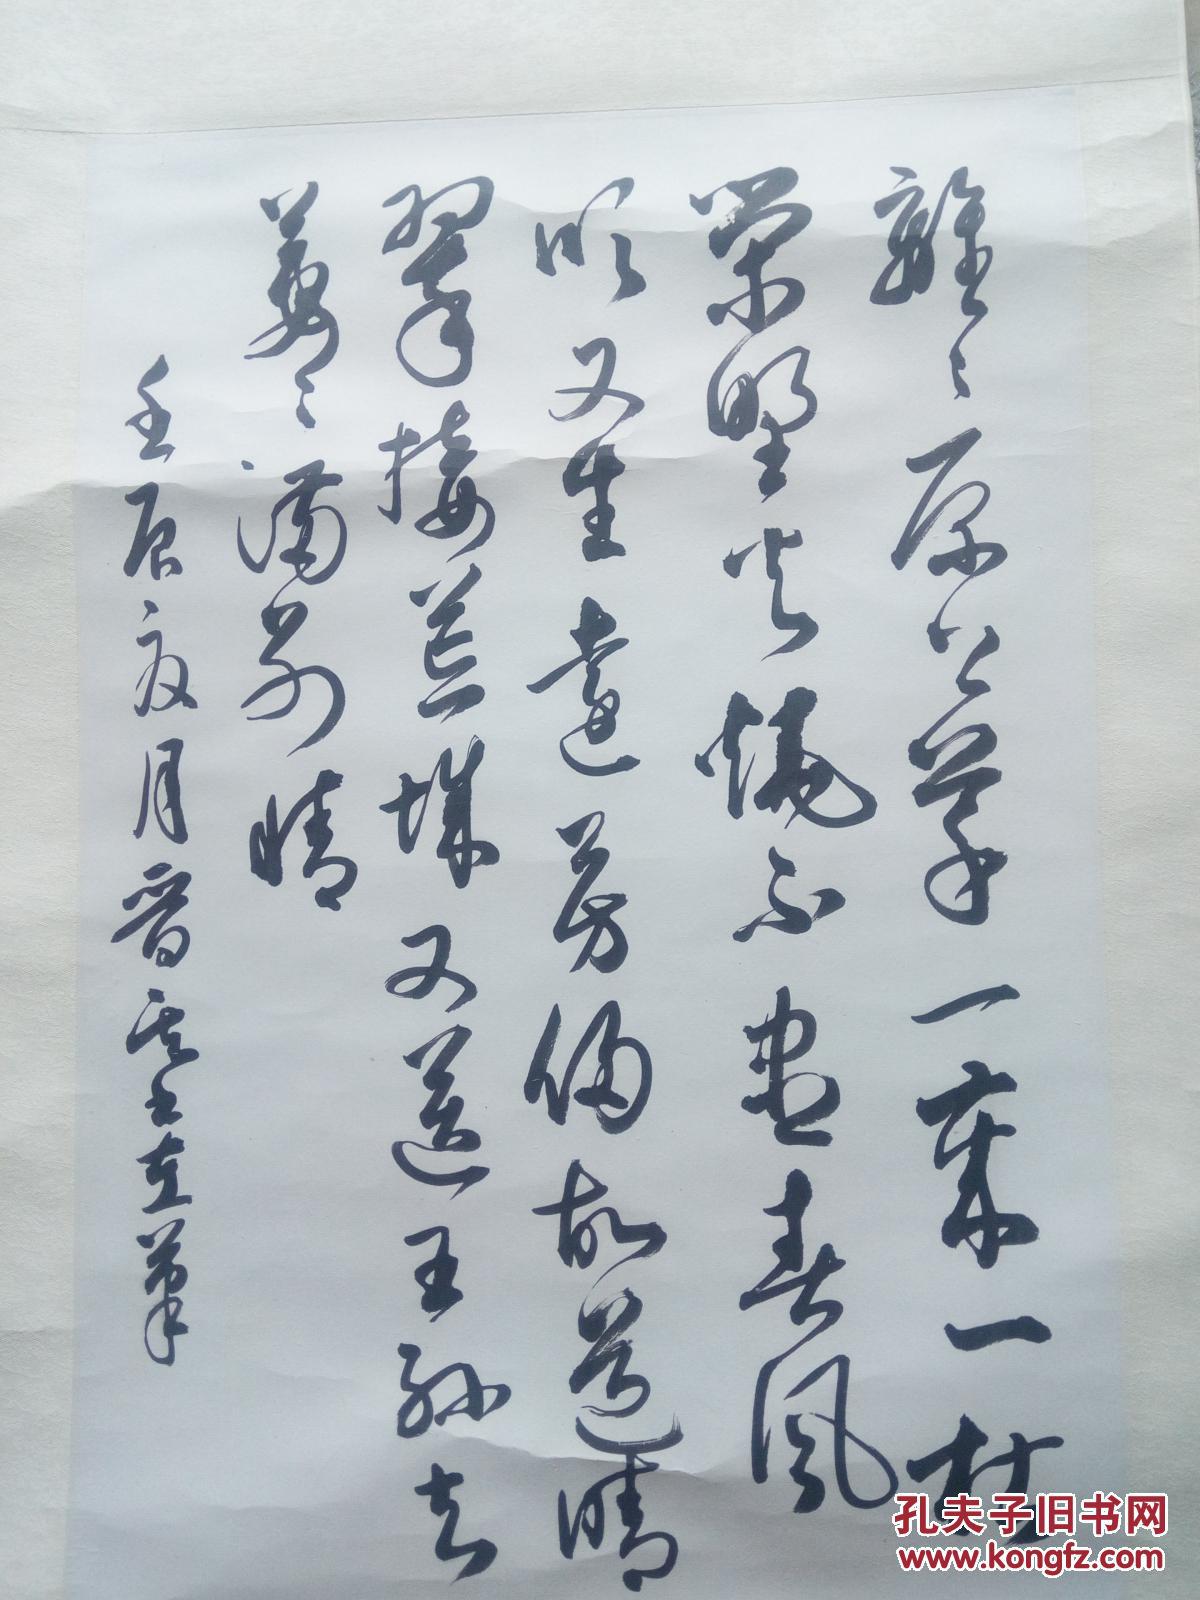 離〻原上草一歲一枯
榮野火燒不盡春風
吹又生遠芳侵故道晴
翠接荒城又送王孫去
萋〻滿別情
壬辰夏月晉左筆
孔夫子旧书网
www.kongfz.com